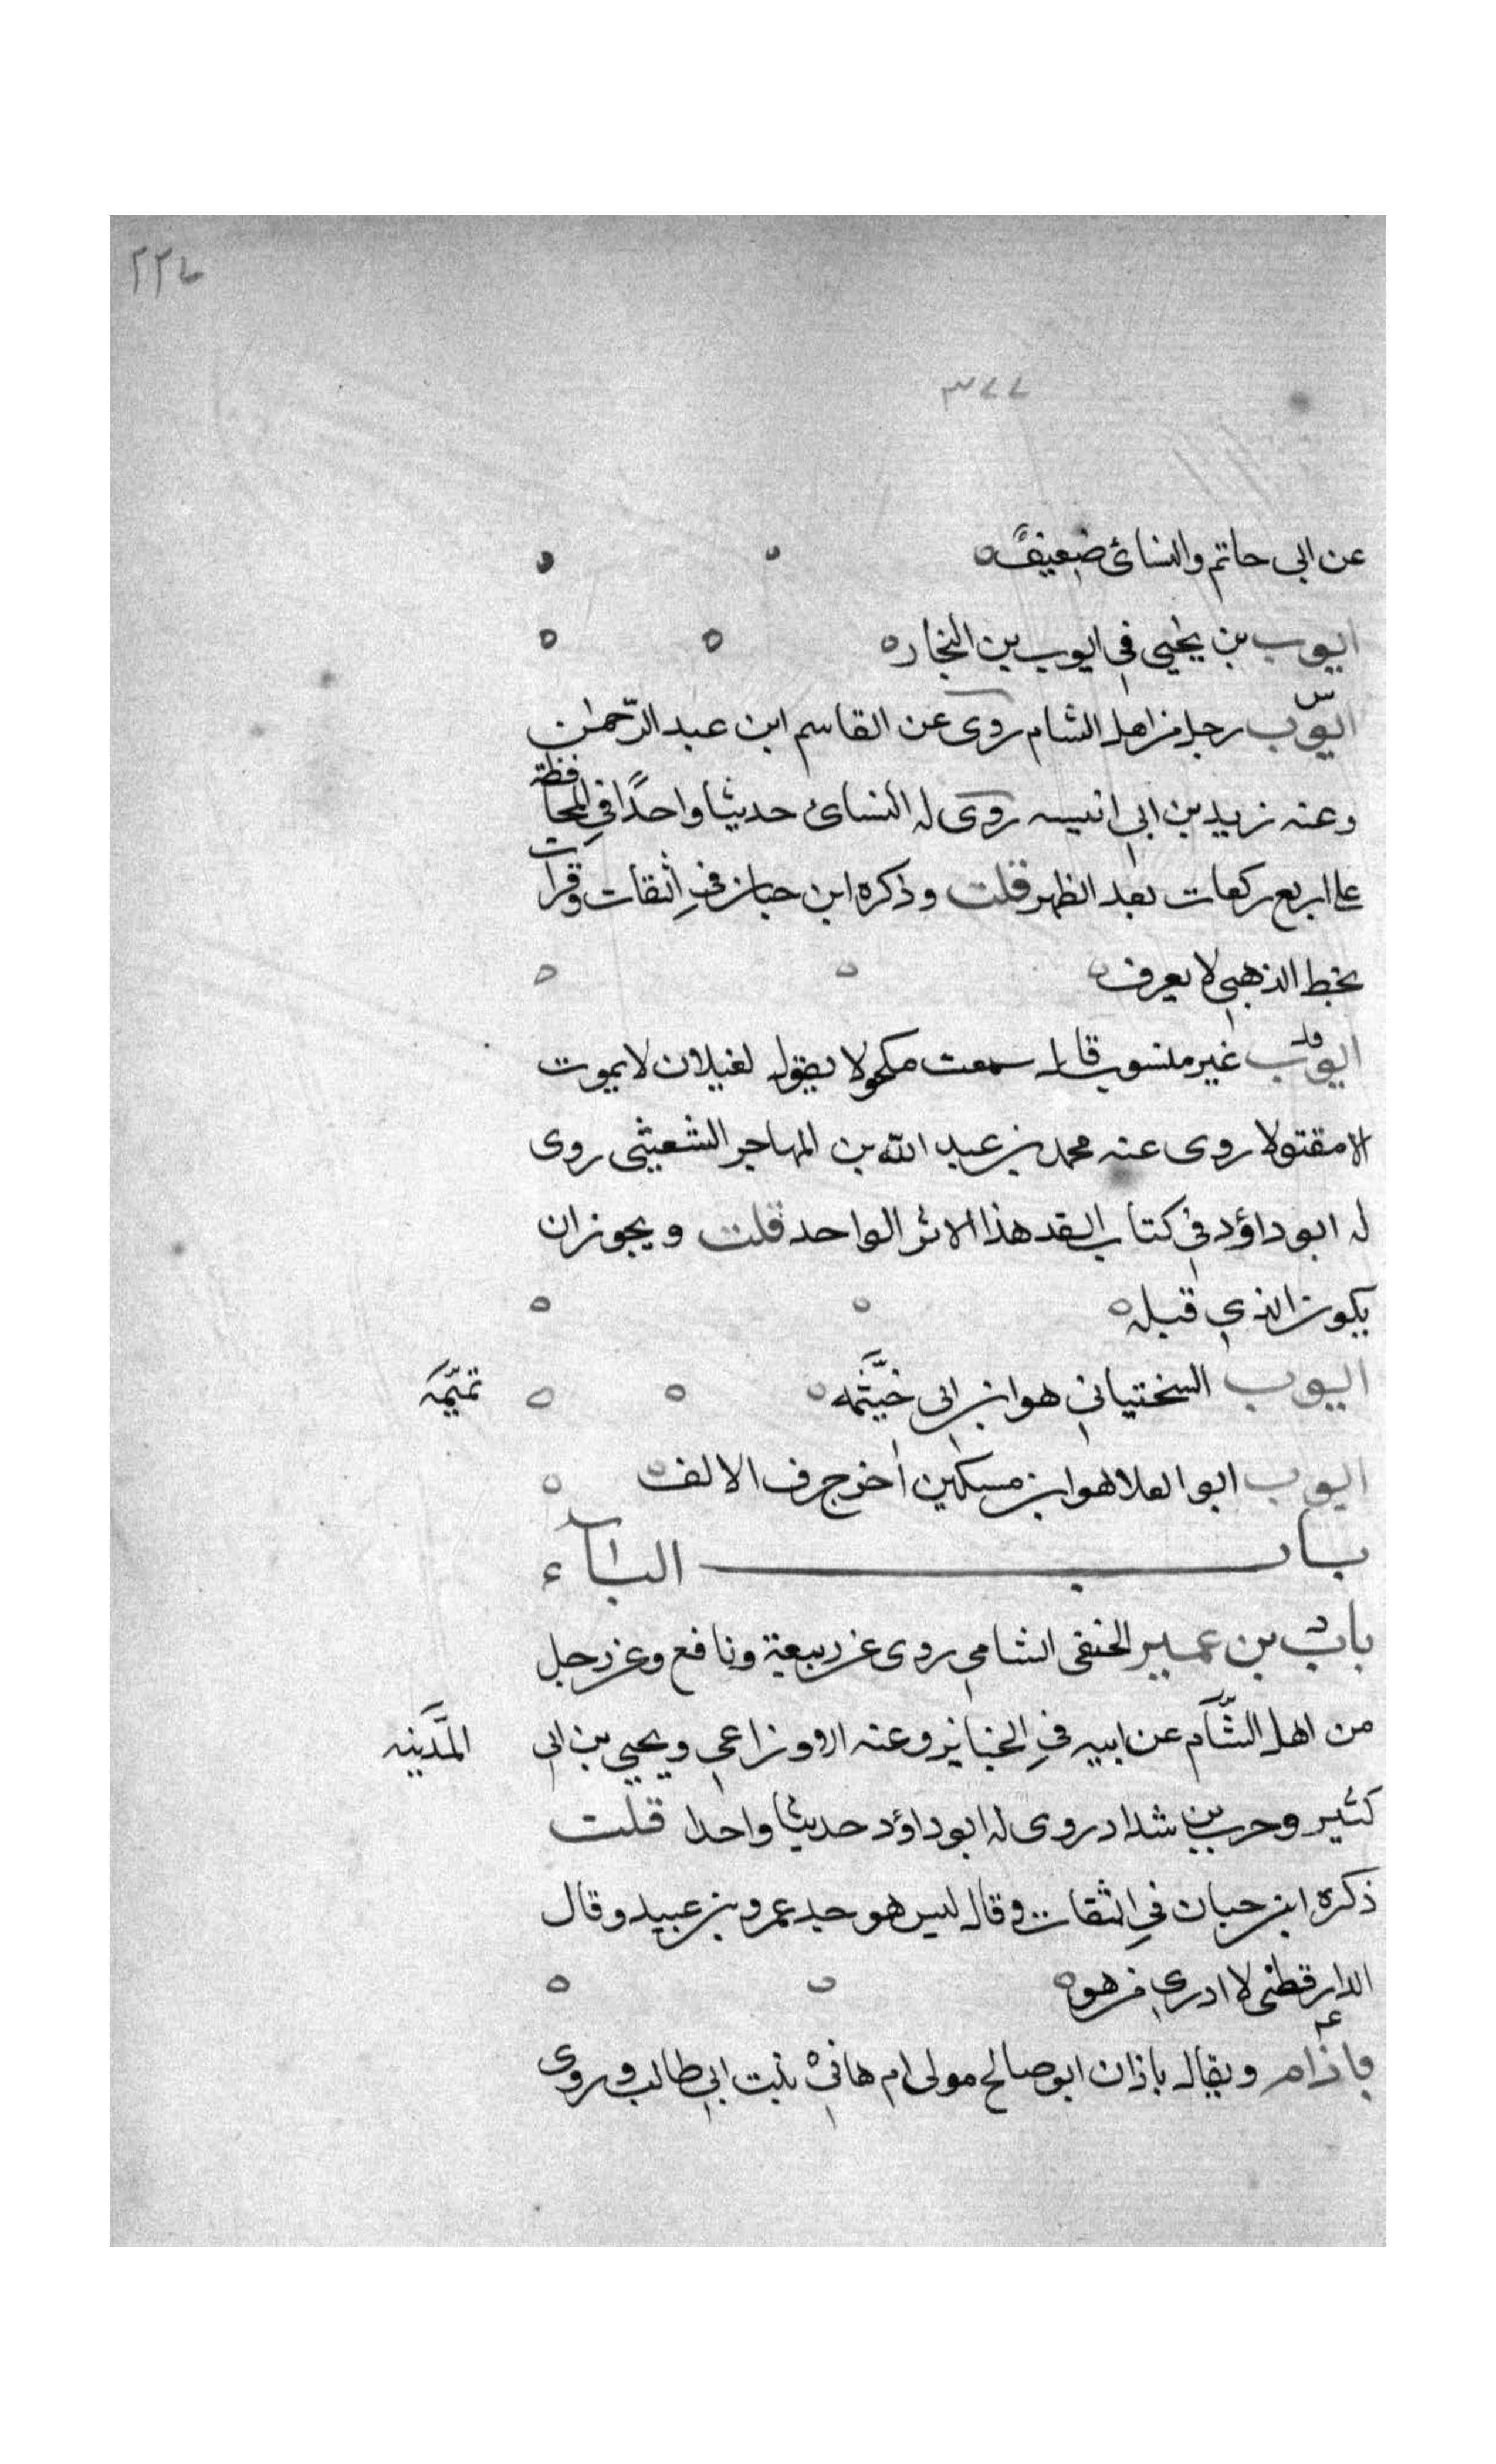 ٢٢٤
٣٧٧
عن ابى حاتم والنسائ ضعيف ه
ايوب بن يحيى فى ايوب بن النجاره
س
ايوب رجل من اهل الشام روى عن القاسم ابن عبد الرحمن
وعنه زيد بن ابى انيسه روى له النسائ حديثا واحدًا فى المحافظة
على اربع ركعات بعد الظهر قلت وذكره ابن حبان فى الثقات وقرات
بخط الذهبى لا يعرف ه
قد
ايوب غير منسوب قال سمعت مكحولا يقول لغيلان لا يموت
الا مقتولا روى عنه محمد بن عبد الله بن المهاجر الشعيثى روى
له ابو داؤد فى كتاب القد هذا الاثر الواحد قلت ويجوز ان
يكون الذى قبله ه
ايوب السختيانى هو ابن ابى خيثمه ه تميمه
ايوب ابو العلا هو ابن مسكين اخر حرف الالف ه
باب البآء
د
باب بن عمير الحنفى الشامى روى عن ربيعة ونافع وعن رجل
من اهل الشآم عن ابيه فى الجنايز وعنه الاوزاعى ويحيى بن ابى المدينه
كثير وحرب بن شداد روى له ابو داؤد حديثا واحدا قلت
ذكره ابن حبان فى الثقات وقال ليس هو جد عمرو بن عبيد وقال
الدارقطنى لا ادرى من هو ه
ع
باذام ويقال باذان ابو صالح مولى ام هانئ بنت ابى طالب روى